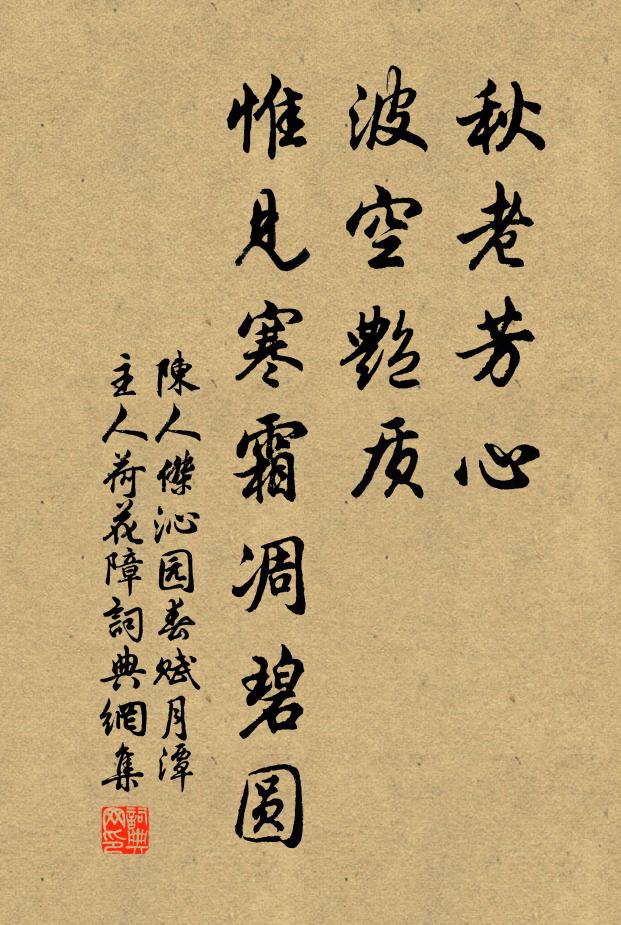 秋老芳心
波空艷质
惟見寒霜凋碧圆
陳人傑沁园春赋月潭
主人荷花障詞典網集
詞典
网印